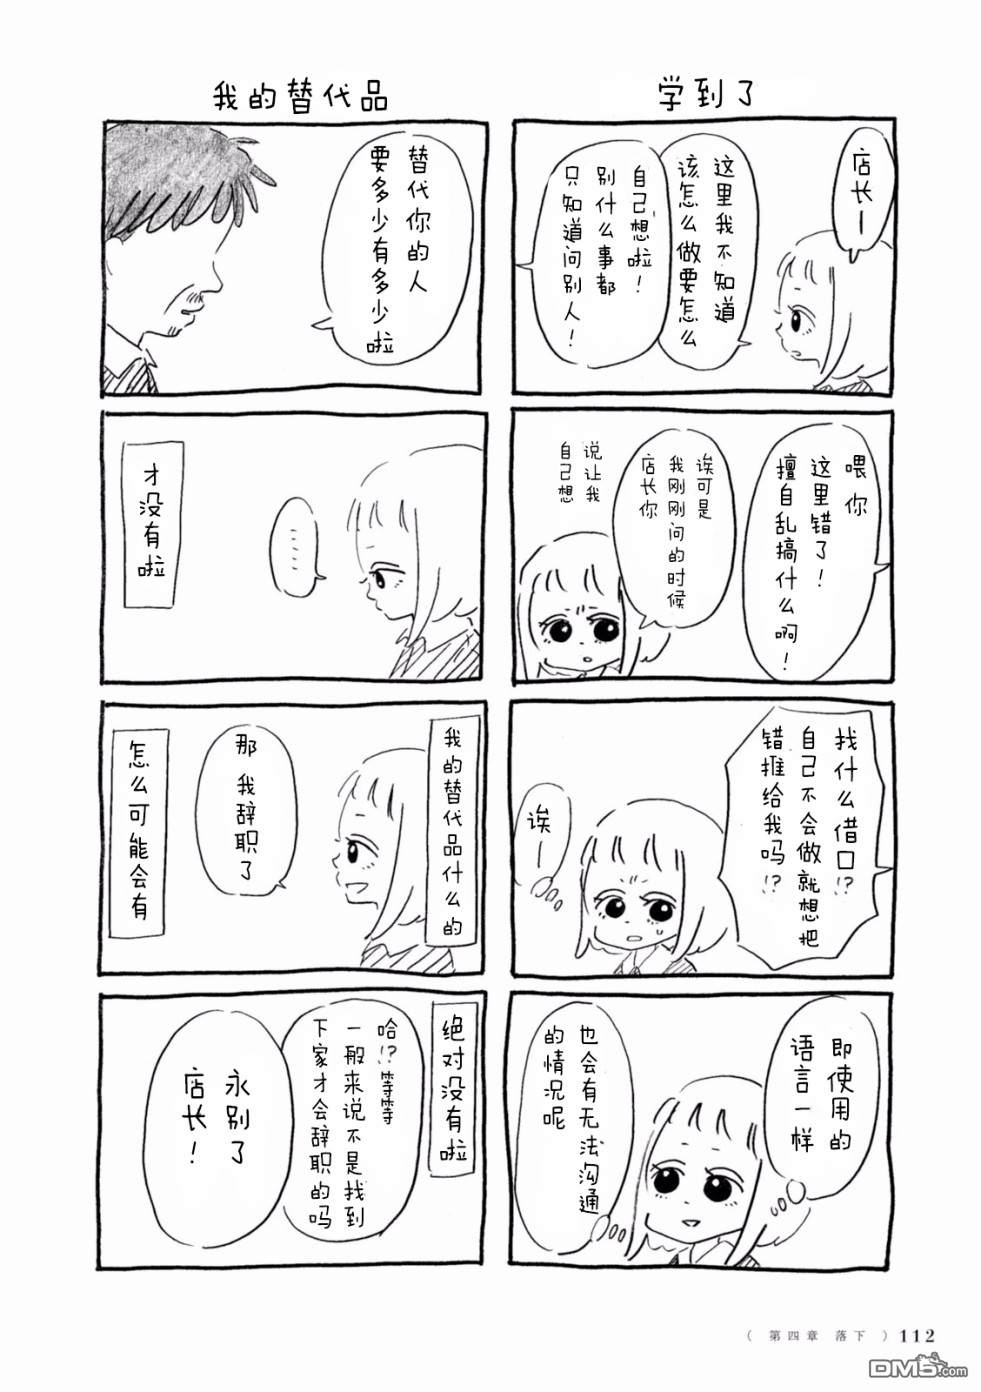 学到了
店长—
这里我不知道
该怎么做要怎么
自己想啦！
别什么事都
只知道问别人！
喂你
这里错了！
擅自乱搞什么啊！
诶可是
我刚刚问的时候
店长你
说让我
自己想
找什么借口!?
自己不会做就想把
错推给我吗!?
诶—
即使用的
语言一样
也会有无法沟通
的情况呢
我的替代品
替代你的人
要多少有多少啦
……
才没有啦
我的替代品什么的
那 我辞职了
怎么可能会有
绝对没有啦
哈!?等等
一般来说不是找到
下家才会辞职的吗
永别了
店长！
（ 第四章 落下 ）112
DM5.com